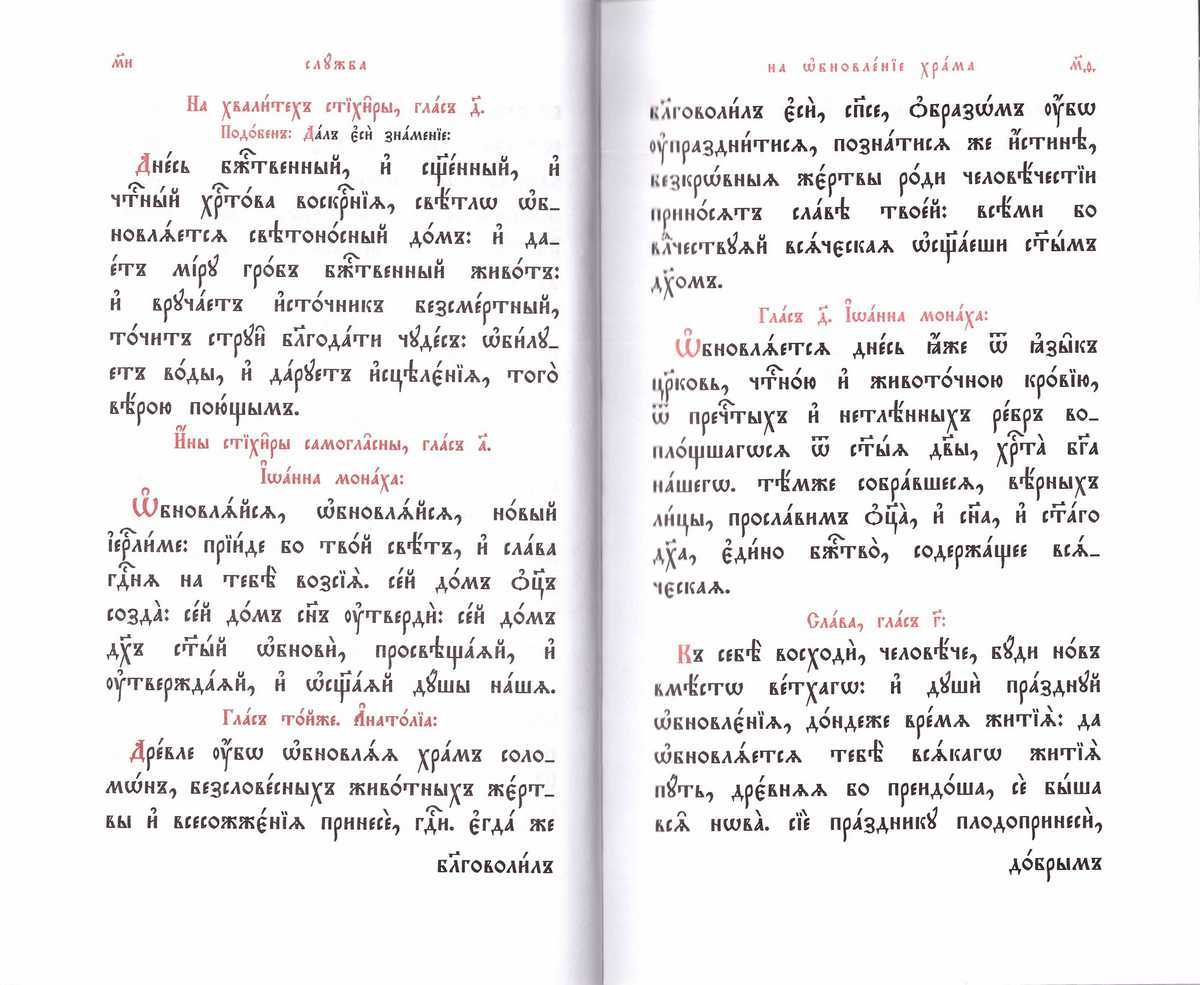 м҃и
слꙋ́жба
На хвали́техъ стїхи̑ры, гла́съ д҃.
Подо́бенъ: Да́лъ є҆сѝ зна́менїе:
Дне́сь бж҃е́ственный, и҆ сщ҃е́нный, и҆
чⷭ҇тны́й хрⷭ҇то́ва воскрⷭ҇нїѧ, свѣ́тлѡ ѡ҆б_
новлѧ́етсѧ свѣтоно́сный до́мъ: и҆ да_
е́тъ мі́рꙋ гро́бъ бжⷭ҇твенный живо́тъ:
и҆ врꙋча́етъ и҆сто́чникъ безсме́ртный,
то́читъ стрꙋи̑ бл҃года́ти чꙋде́съ: ѡ҆би́лꙋ_
етъ во́ды, и҆ да́рꙋетъ и҆сцѣлє́нїѧ, того̀
вѣ́рою пою́щымъ.
И҆́ны стїхи̑ры самогла̑сны, гла́съ а҃.
І҆ѡа́нна мона́ха:
Ѡ҆бновлѧ́йсѧ, ѡ҆бновлѧ́йсѧ, но́вый
і҆ерⷭ҇ли́ме: прїи́де бо тво́й свѣ́тъ, и҆ сла́ва
гдⷭ҇нѧ на тебѣ̀ возсїѧ̀. се́й до́мъ ѻ҆ц҃ъ
созда̀: се́й до́мъ сн҃ъ ᲂу҆твердѝ: се́й до́мъ
дх҃ъ ст҃ы́й ѡ҆бновѝ, просвѣща́ѧй, и҆
ᲂу҆твержда́ѧй, и҆ ѡ҆сщ҃а́ѧй дꙋ́шы на́шѧ.
Гла́съ то́йже. А҆нато́лїа:
Дре́вле ᲂу҆́бѡ ѡ҆бновлѧ́ѧ хра́мъ соло_
мѡ́нъ, безслове́сныхъ живо́тныхъ жє́рт_
вы и҆ всесожжє́нїѧ принесѐ, гдⷭ҇и. є҆гда́ же
бл҃говоли́лъ
на ѡ҆бновле́нїе хра́ма
м҃ѳ.
бл҃говоли́лъ є҆сѝ, сп҃се, ѻ҆́бразѡмъ ᲂу҆́бѡ
ᲂу҆праздни́тисѧ, позна́тисѧ же и҆́стинѣ,
безкрѡ́вныѧ жє́ртвы ро́ди человѣ́чествїи
прино́сѧтъ сла́вѣ твое́й: всѣ́ми бо
влⷣчествꙋѧй всѧ́чєскаѧ ѡ҆сщ҃а́еши ст҃ы́мъ
дх҃омъ.
Гла́съ д҃. І҆ѡа́нна мона́ха:
Ѡ҆бновлѧ́етсѧ дне́сь ꙗ҆́же ѿ ꙗ҆зы̑къ
цр҃ковь, чⷭ҇тно́ю и҆ животочною кро́вїю,
ѿ пречⷭ҇тыхъ и҆ нетлѣ́нныхъ ре́бръ во_
пло́щшагѡсѧ ѿ ст҃ы́ѧ дв҃ы, хрⷭ҇та̀ бг҃а
на́шегѡ. тѣ́мже собра́вшесѧ, вѣ́рныхъ
ли́цы, просла́вимъ ѻ҆ц҃а̀, и҆ сн҃а, и҆ ст҃а́го
дх҃а, є҆ди́но бжⷭ҇тво̀, содержа́щее всѧ́_
чєскаѧ.
Сла́ва, гла́съ г҃:
Къ себѣ̀ восходѝ, человѣ́че, бꙋ́ди но́въ
вмѣ́стѡ ве́тхагѡ: и҆ дꙋшѝ пра́зднꙋй
ѡ҆бновле́нїѧ, до́ндеже вре́мѧ житїѧ̀: да
ѡ҆бновлѧ́етсѧ тебѣ̀ всѧ́кагѡ житїѧ̀
пꙋ́ть, дре́внѧѧ бо преидо́ша, сѐ бы́ша
всѧ̑ нѡва̀. сїѐ пра́здникꙋ плодопринесѝ,
до́брымъ